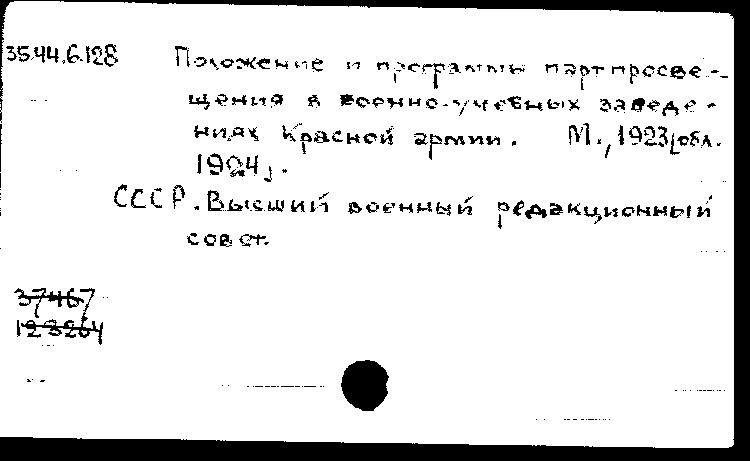 35.44.6.128 Положение и программы партпросве-
щения в военно-учебных заведе-
ниях Красной армии. М., 1923[обл.
1924].
СССР. Высший военный редакционный
совет.
37467
123264